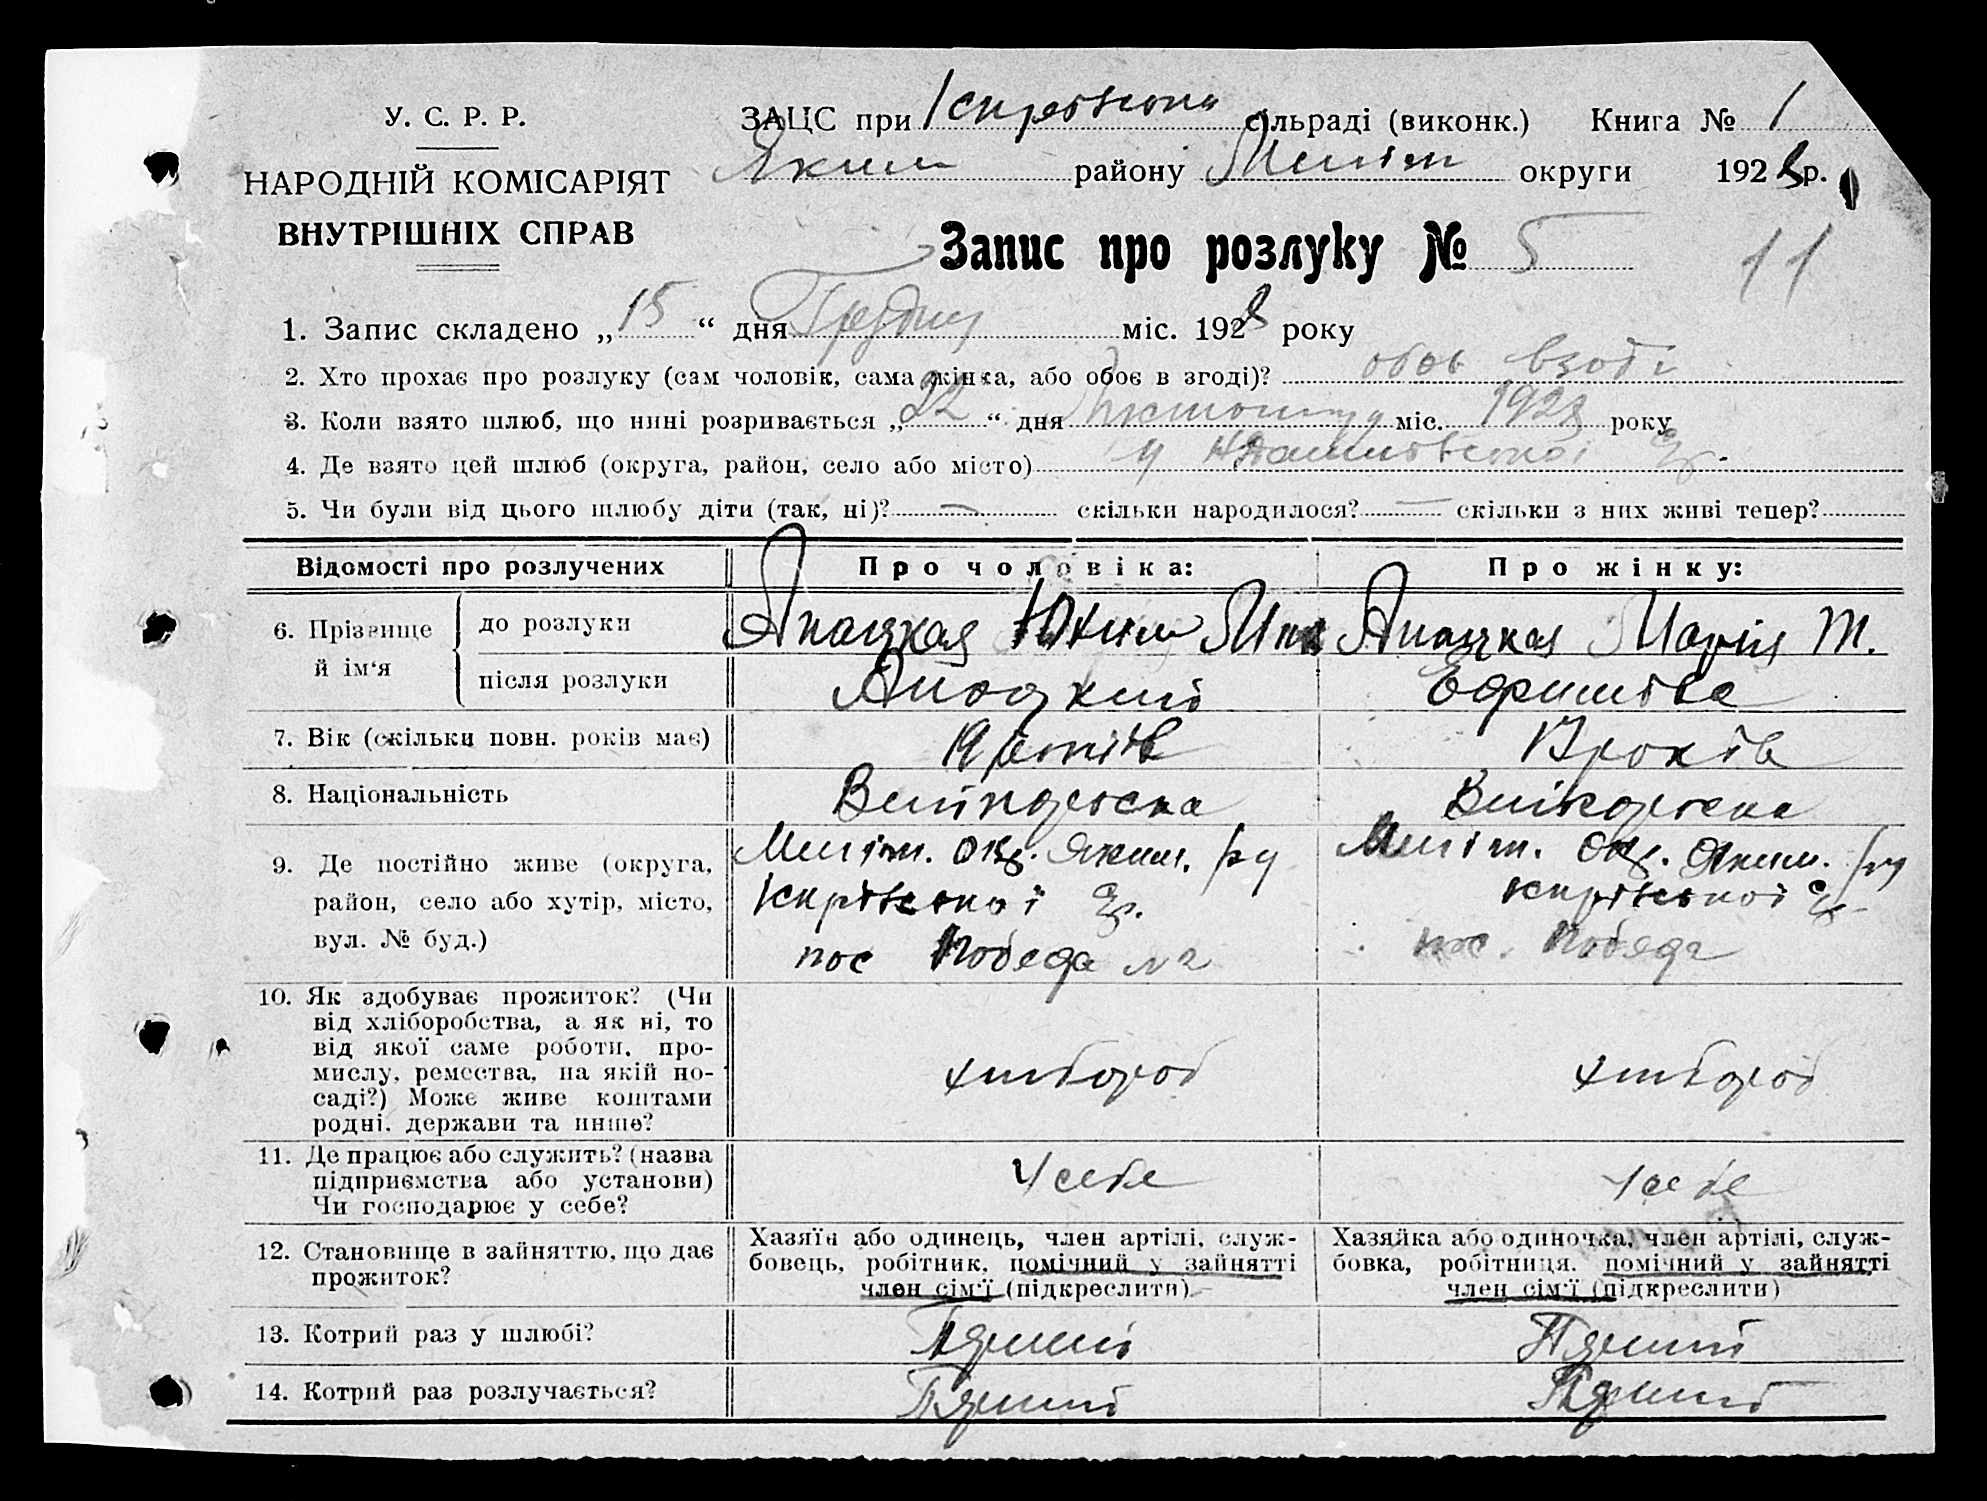 У. С. Р. Р.
НАРОДНІЙ КОМІСАРІЯТ
ВНУТРІШНІХ СПРАВ
ЗАЦС при сільраді (виконк.) Книга № 1
Яким району Меліт округи 1928 р.
Запис про розлуку № 5
11
1. Запис складено „15“ дня Грудня міс. 1928 року
2. Хто прохає про розлуку (сам чоловік, сама жінка, або обоє в згоді)? обоє
3. Коли взято шлюб, що нині розривається „22“ дня міс. 1928 року
4. Де взято цей шлюб (округа, район, село або місто) у
5. Чи були від цього шлюбу діти (так, ні)? — скільки народилося? — скільки з них живі тепер?
Відомості про розлучених Про чоловіка: Про жінку:
6. Прізвище й ім‘я
до розлуки Юхим Марія Т.
після розлуки
7. Вік (скільки повн. років має) 19 років 17 років
8. Національність
9. Де постійно живе (округа, Меліт. окр. Яким. р-ну Меліт. окр. Яким. р-ну
район, село або хутір, місто,
вул. № буд.) пос Победа №2 пос. Победа
10. Як здобуває прожиток? (Чи
від хліборобства, а як ні, то
від якої саме роботи, про-
мислу, ремества, на якій по-
саді?) Може живе коштами
родні, держави та инше?
хлібороб хлібороб
11. Де працює або служить? (назва
підприємства або установи)
Чи господарює у себе?
У себе У себе
12. Становище в зайняттю, що дає
прожиток?
Хазяїн або одинець, член артілі, служ-
бовець, робітник, помічний у зайнятті
член сім‘ї (підкреслити)
Хазяйка або одиночка, член артілі, служ-
бовка, робітниця, помічний у зайнятті
член сім‘ї (підкреслити)
13. Котрий раз у шлюбі? Перший Перший
14. Котрий раз розлучається? Перший Перший